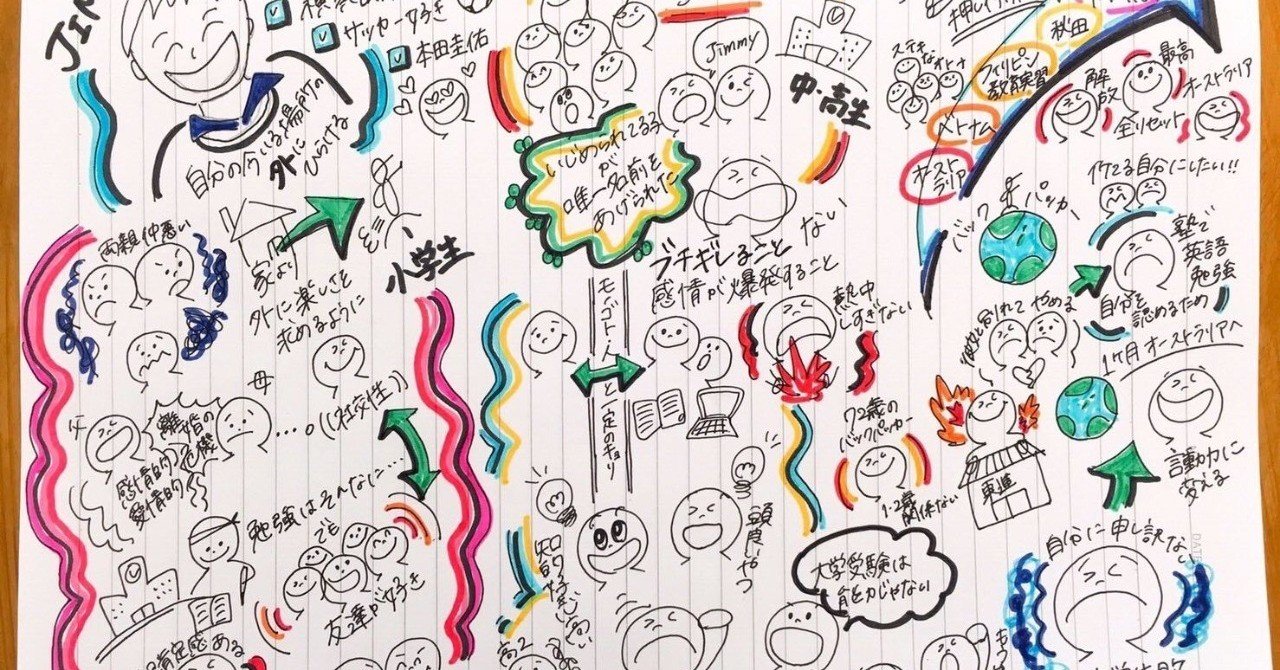 サッカー好き
本田圭佑
自分の今いる場所の
外に
ひらける
Jimmy
中・高生
いじめられてる子
が
唯一名前を
あげられた
ステキ
秋田
フィリピン
教育実習
ベトナム
オースト
ラリア
解放
最高
全リセット
オーストラリア
イケてる自分にしたい!!
バックパッカー
塾で
英語
勉強
自分を
認めるため
1ヶ月オーストラリアへ
言動力に
変える
両親仲悪い
家より
外に楽しさを
求めるように
小学生
ない
ブチギレること
感情が爆発すること
熱中
しすぎない
モノゴト・
と一定のキョリ
彼女と別れてやめる
父
離婚の
危機
母
感情的
愛情的
((社交性))
勉強はそんな…
でも
友達が好き
肯定感ある
72歳の
バックパッカー
1・2歳
関係ない
東進
頭良いやつ
知的好き
高2
大学受験は
能力じゃない
自分に申し訳ない
DATE